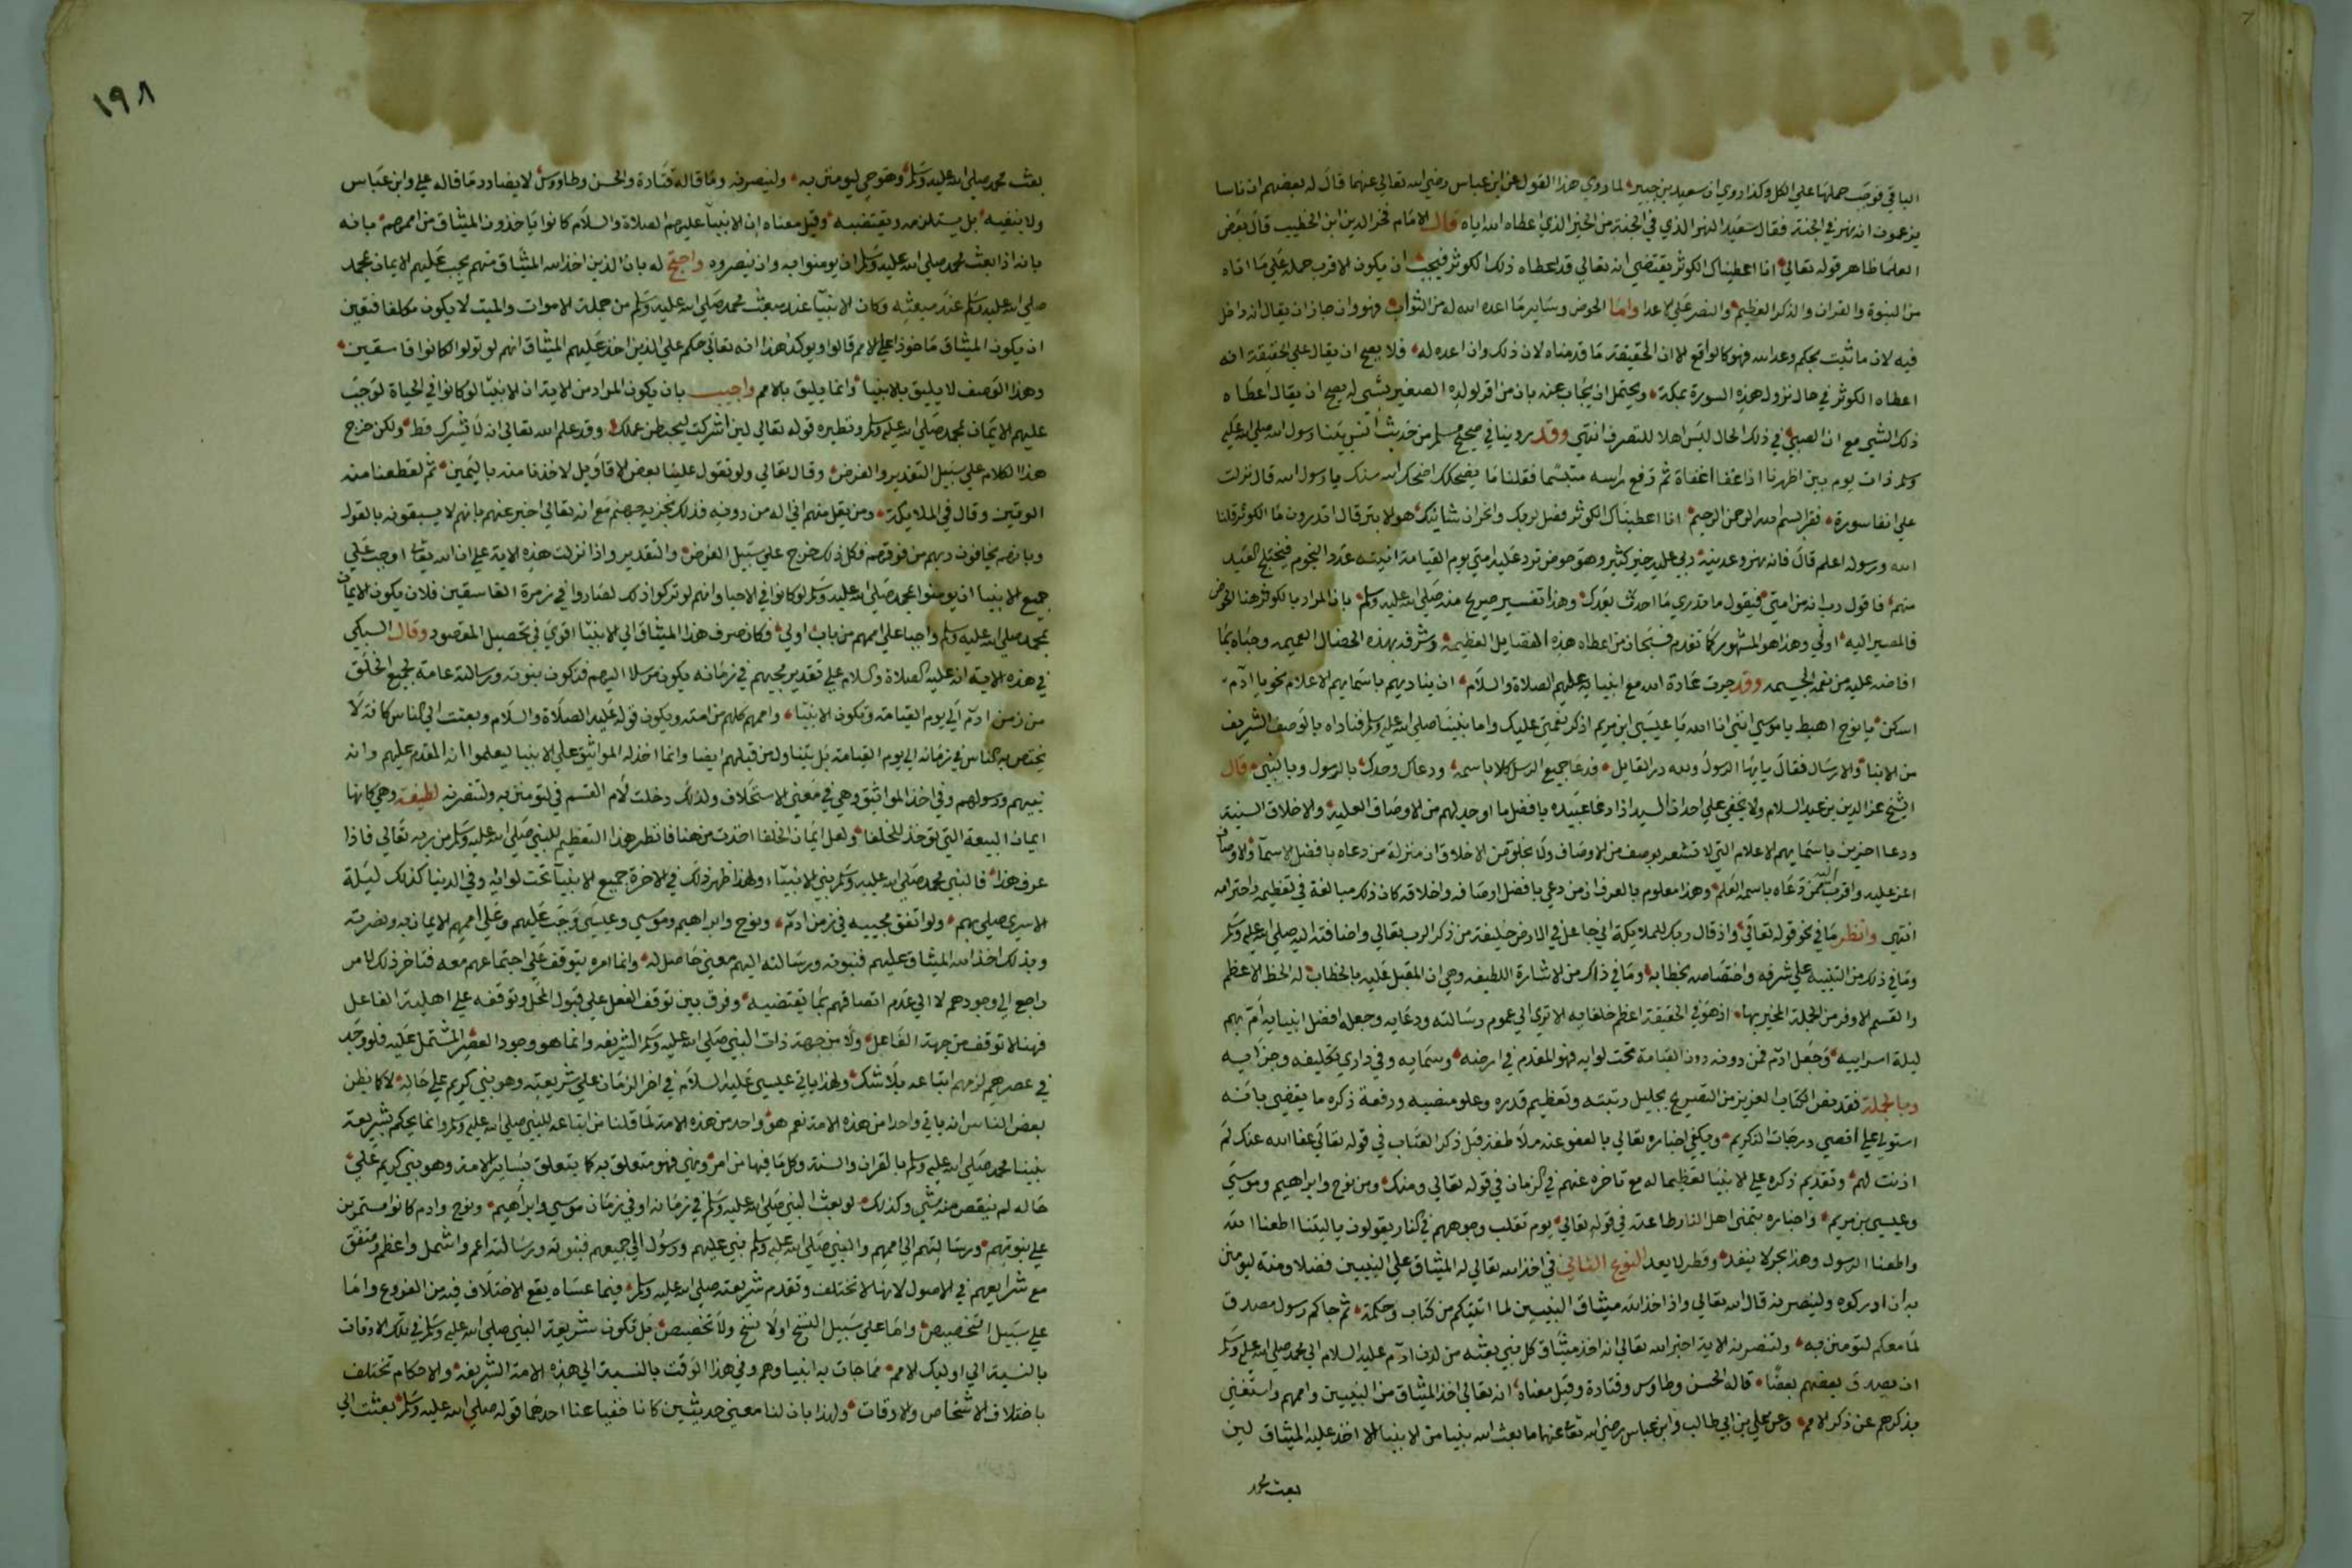 الباقي فوجب حملها علي الكل وكذا روي ان سعيد بن جبير لما روي هذا القول عن ابن عباس رضي الله تعالي عنهما قال له بعضهم ان ناسا
يزعمون انه نهر في الجنة فقال سعيد النهر الذي في الجنة من الخير الذي اعطاه الله اياه قال الامام فخر الدين ابن الخطيب قال بعض
العلما ظاهر قوله تعالي انا اعطيناك الكوثر يقتضي انه تعالي قد اعطاه ذلك الكوثر فيجب ان يكون الاقرب حمله علي ما اتاه
من النبوة والقران والذكر العظيم والنصر علي الاعدا واما الحوض وساير ما اعده الله له من الثواب فهو وان جاز ان يقال انه داخل
فيه لان ما ثبت بحكم وعد الله فهو كالواقع الا ان الحقيقة ما قدمناه لان ذلك وان اعده له فلا يصح ان يقال علي الحقيقة انه
اعطاه الكوثر في حال نزول هذه السورة بمكة ويحتمل ان يجاب عنه بان من اقر لولده الصغير بشي له يصح ان يقال اعطاه
ذلك الشي مع ان الصبي في ذلك الحال ليس اهلا للتصرف انتهي وقد روينا في صحيح مسلم من حديث انس بينا رسول الله صلي الله عليه
وسلم ذات يوم بين اظهرنا اذ اغفا اغفاة ثم رفع راسه متبسما فقلنا ما يضحكك اضحك الله سنك يا رسول الله قال نزلت
علي انفا سورة فقرا بسم الله الرحمن الرحيم انا اعطيناك الكوثر فصل لربك وانحر ان شانيك هو الابتر قال اتدرون ما الكوثر قلنا
الله ورسوله اعلم قال فانه نهر وعدنيه ربي عليه خير كثير وهو حوض ترد عليه امتي يوم القيامة انيته عدد النجوم فيختلج العبد
منهم فاقول رب انه من امتي فيقول ما تدري ما احدث بعدك وهذا تفسير صريح منه صلي الله عليه وسلم بان المراد بالكوثر هنا الحوض
فالمصير اليه اولي وهذا هو المشهور كما تقدم فسبحان من اعطاه هذه الفضايل العظيمة وشرفه بهذه الخصال العميمه وحباه بما
افاضه عليه من نعمه الجسيمه وقد جرت عادة الله مع انبيايه عليهم الصلاة والسلام ان يناديهم باسمايهم الاعلام نحو يا ادم
اسكن يا نوح اهبط يا موسي انني انا الله يا عيسي ابن مريم اذكر نعمتي عليك واما نبينا صلي الله عليه وسلم فناداه بالوصف الشريف
من الانبا والارسال فقال يا ايها الرسول ولله در القايل فدعا جميع الرسل كلا باسمه ودعاك وحدك بالرسول وبالنبي قال
الشيخ عز الدين بن عبد السلام ولا يخفي علي احد ان السيد اذا دعا عبيده بافضل ما اوجد لهم من الاوصاف العلية والاخلاق السنية
ودعا اخرين باسمايهم الاعلام التي لا تشعر بوصف من الاوصاف ولا بخلق من الاخلاق ان منزلة من دعاه بافضل الاسما والاوصاف
اعز عليه واقرب اليه ممن دعاه باسمه العلم وهذا معلوم بالعرف ان من دعي بافضل اوصافه واخلاقه كان ذلك مبالغة في تعظيمه واحترامه
انتهي وانظر ما في نحو قوله تعالي واذ قال ربك للملايكة اني جاعل في الارض خليفة من ذكر الرب تعالي واضافته اليه صلي الله عليه وسلم
وما في ذلك من التنبيه علي شرفه واختصاصه بخطابه وما في ذاك من الاشارة اللطيفه وهي ان المقبل عليه بالخطاب له الحظ الاعظم
والقسم الاوفر من الجملة المخبر بها اذ هو في الحقيقة اعظم خلفايه الا تري الي عموم رسالته ودعايه وجعله افضل انبيايه ام بهم
ليلة اسراييه وجعل ادم فمن دونه دون القيامة تحت لوايه فهو المقدم في ارضه وسمايه وفي داري تكليفه وجزاييه
وبالجملة فقد تضمن الكتاب العزيز من التصريح بجليل رتبته وتعظيم قدره وعلو منصبه ورفعة ذكره ما يقضي بانه
استولي علي اقصي درجات التكريم ويكفي اخباره تعالي بالعفو عنه ملاطفة قبل ذكر العتاب في قوله تعالي عفا الله عنك لم
اذنت لهم وتقديم ذكره علي الانبيا تعظيما له مع تاخره عنهم في الزمان في قوله تعالي ومنك ومن نوح وابراهيم وموسي
وعيسي بن مريم واخباره بتمني اهل النار طاعته في قوله تعالي يوم تقلب وجوههم في النار يقولون ياليتنا اطعنا الله
واطعنا الرسول وهذا بحر لا ينفد وقطر لا يعد النوع الثاني في اخذ الله تعالي له الميثاق علي النبيين فضلا ومنة ليومنن
به ان ادركوه ولينصرنه قال الله تعالي واذ اخذ الله ميثاق النبيين لما اتيتكم من كتاب وحكمة ثم جاكم رسول مصدق
لما معكم لتومنن به ولتنصرنه الاية اخبر الله تعالي انه اخذ ميثاق كل نبي بعثه من لدن ادم عليه السلام الي محمد صلي الله عليه وسلم
ان يصدق بعضهم بعضا قاله الحسن وطاوس وقتادة وقيل معناه انه تعالي اخذ الميثاق من النبيين واممهم واستغني
بذكرهم عن ذكر الامم وعن علي بن ابي طالب وابن عباس رضي الله تعالي عنهما ما بعث الله نبيا من الانبيا الا اخذ عليه الميثاق لين
بعث محمد
١٩٨
بعث محمد صلي الله عليه وسلم وهو حي ليومنن به ولينصرنه وما قاله قتادة والحسن وطاووس لا يضادد ما قاله علي وابن عباس
ولا ينفيه بل يستلزمه ويقتضيه وقيل معناه ان الانبيا عليهم الصلاة والسلام كانوا ياخذون الميثاق من اممهم بانه
بانه اذا بعث محمد صلي الله عليه وسلم ان يومنوا به وان ينصروه واحتج له بان الذين اخذ الله الميثاق منهم يجب عليهم الايمان بمحمد
صلي الله عليه وسلم عند مبعثه وكان الانبيا عند مبعث محمد صلي الله عليه وسلم من جملة الاموات والميت لا يكون مكلفا فتعين
ان يكون الميثاق ماخوذا علي الامم قالوا ويوكد هذا انه تعالي حكم علي الذين اخذ عليهم الميثاق انهم لو تولوا لكانوا فاسقين
وهذا الوصف لا يليق بالانبيا وانما يليق بالامم واجيب بان يكون المراد من الاية ان الانبيا لو كانوا في الحياة لوجب
عليهم الايمان بمحمد صلي الله عليه وسلم ونظيره قوله تعالي لين اشركت ليحبطن عملك وقد علم الله تعالي انه لا يشرك قط ولكن خرج
هذا الكلام علي سبيل التقدير والفرض وقال تعالي ولو تقول علينا بعض الاقاويل لاخذنا منه باليمين ثم لقطعنا منه
الوتين وقال في الملايكة ومن يقل منهم اني اله من دونه فذلك نجزيه جهنم مع انه تعالي اخبر عنهم بانهم لا يسبقونه بالقول
وبانهم يخافون ربهم من فوقهم فكل ذلك خرج علي سبيل الفرض والتقدير واذا نزلت هذه الاية علي ان الله تعالي اوجب علي
جميع الانبيا ان يومنوا بمحمد صلي الله عليه وسلم لو كانوا في الاحيا وانهم لو تركوا ذلك لصاروا في زمرة الفاسقين فلان يكون الايمان
بمحمد صلي الله عليه وسلم واجبا علي اممهم من باب اولي فكان صرف هذا الميثاق الي الانبيا اقوي في تحصيل المقصود وقال السبكي
في هذه الاية انه عليه الصلاة والسلام علي تقدير مجيهم في زمانه يكون مرسلا اليهم فتكون نبوته ورسالته عامة لجميع الخلق
من زمن ادم الي يوم القيامة وتكون الانبيا واممهم كلهم من امته ويكون قوله عليه الصلاة والسلام وبعثت الي الناس كافة لا
يختص به الناس في زمانه الي يوم القيامة بل يتناول من قبلهم ايضا وانما اخذ له المواثيق علي الانبيا ليعلموا انه المقدم عليهم وانه
نبيهم ورسولهم وفي اخذ المواثيق وهي في معني الاستخلاف ولذلك دخلت لام القسم في لتومنن به ولتنصرنه لطيفة وهي كانها
ايمان البيعة التي توخذ للخلفا ولعل ايمان الخلفا اخذت من هنا فانظر هذا التعظيم للنبي صلي الله عليه وسلم من ربه تعالي فاذا
عرف هذا فالنبي محمد صلي الله عليه وسلم نبي الانبيا ولهذا ظهر ذلك في الاخرة جميع الانبيا تحت لوايه وفي الدنيا كذلك ليلة
الاسري صلي بهم ولو اتفق مجييه في زمن ادم ونوح وابراهيم وموسي وعيسي وجب عليهم وعلي اممهم الايمان به ونصرته
وبذلك اخذ الله الميثاق عليهم فنبوته ورسالته اليهم معني حاصل له وانما امره يتوقف علي اجتماعهم معه فتاخر ذلك لامر
راجع الي وجودهم لا الي عدم اتصافهم بما يقتضيه وفرق بين توقف الفعل علي قبول المحل وتوقفه علي اهلية الفاعل
فهنا لا توقف من جهة الفاعل ولا من جهة ذات النبي صلي الله عليه وسلم الشريفه وانما هو وجود العصر المشتمل عليه فلو وجد
في عصرهم لزمهم اتباعه بلا شك ولهذا ياتي عيسي عليه السلام في اخر الزمان علي شريعته وهو نبي كريم علي حاله لا كما يظن
بعض الناس انه ياتي واحدا من هذه الامة نعم هو واحد من هذه الامة لما قلنا من اتباعه للنبي صلي الله عليه وسلم وانما يحكم بشريعة
نبينا محمد صلي الله عليه وسلم بالقران والسنة وكل ما فيها من امر ونهي فهو متعلق به كما يتعلق بساير الامة وهو نبي كريم علي
حاله لم ينقص منه شي وكذلك لو بعث النبي صلي الله عليه وسلم في زمانه او في زمان موسي وابراهيم ونوح وادم كانوا مستمرين
علي نبوتهم ورسالتهم الي اممهم والنبي صلي الله عليه وسلم نبي عليهم ورسول الي جميعهم فنبوته ورسالته اعم واشمل واعظم ومتفق
مع شرايعهم في الاصول لانها لا تختلف وتقدم شريعته صلي الله عليه وسلم فيما عساه يقع الاختلاف فيه من الفروع واما
علي سبيل التخصيص واما علي سبيل النسخ او لا نسخ ولا تخصيص بل تكون شريعة النبي صلي الله عليه وسلم في تلك الاوقات
بالنسبة الي اوليك الامم مما جات به انبياوهم وفي هذا الوقت بالنسبة الي هذه الامة الشريفة والاحكام تختلف
باختلاف الاشخاص والاوقات ولهذا بان لنا معني حديثين كانا خفيا عنا احدهما قوله صلي الله عليه وسلم بعثت الي